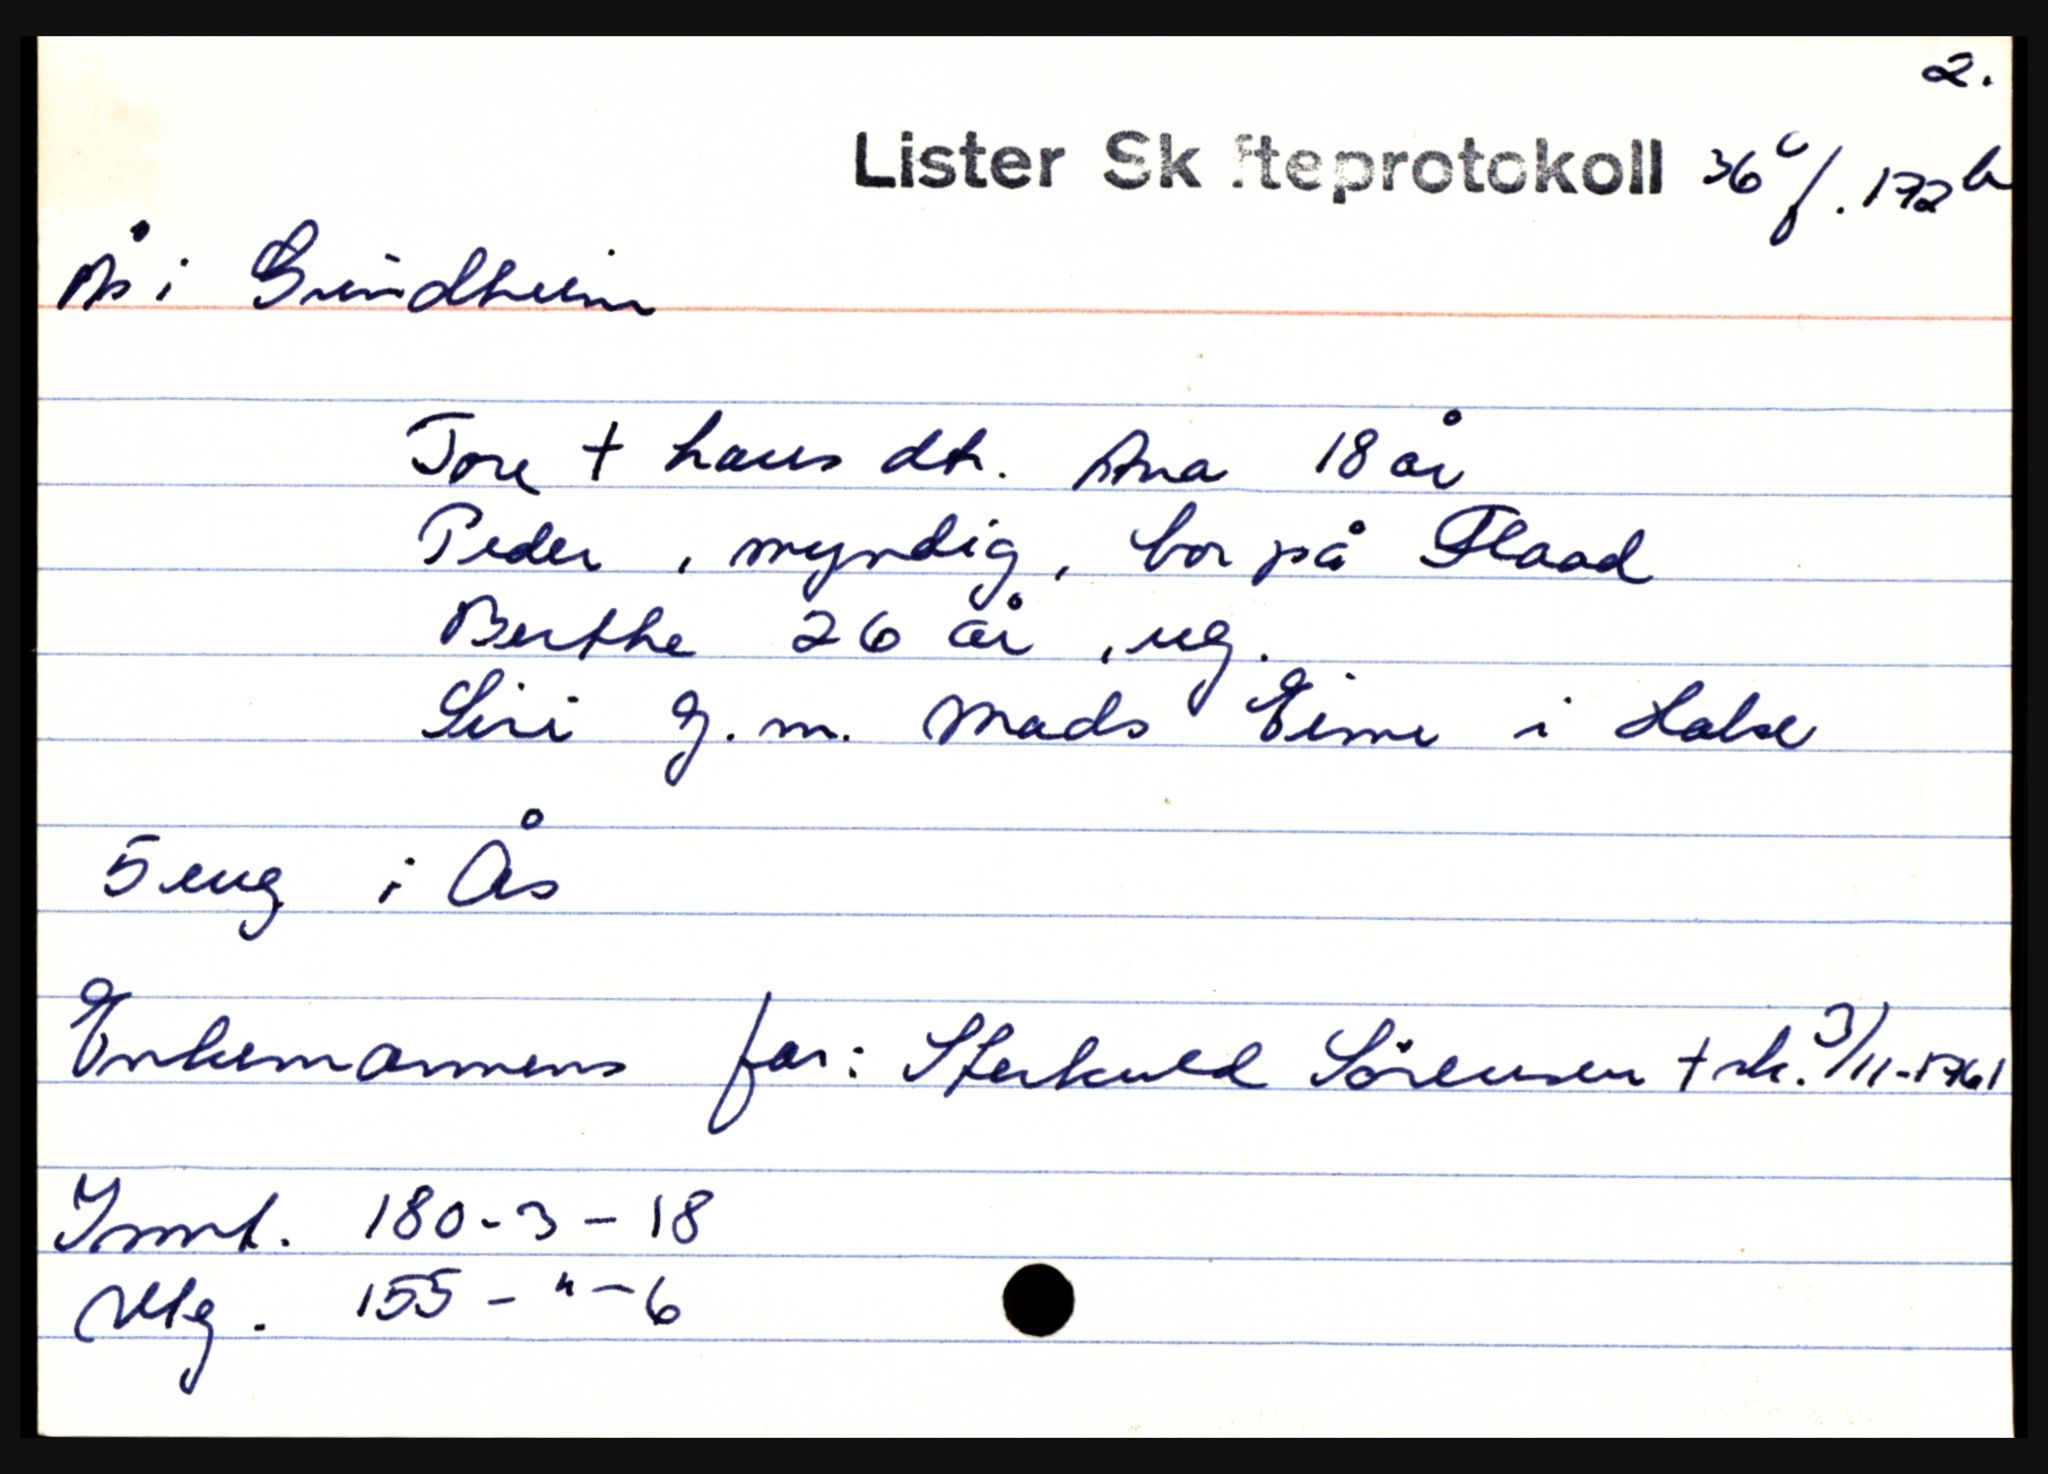 2.
Lister Sk fteprotokoll 36c f. 172b
Ås i Grindheim
Tore † hans dtr. Ana 18 år
Peder, myndig, bor på Flaad
Berthe 26 år, ug.
Siri g. m. Mads Eime i Halse
5 eng i Ås
Enkemannens far: Sterkuld Sörensen † sk. 3/11-1761
Innt. 180-3-18
Utg. 155-"-6